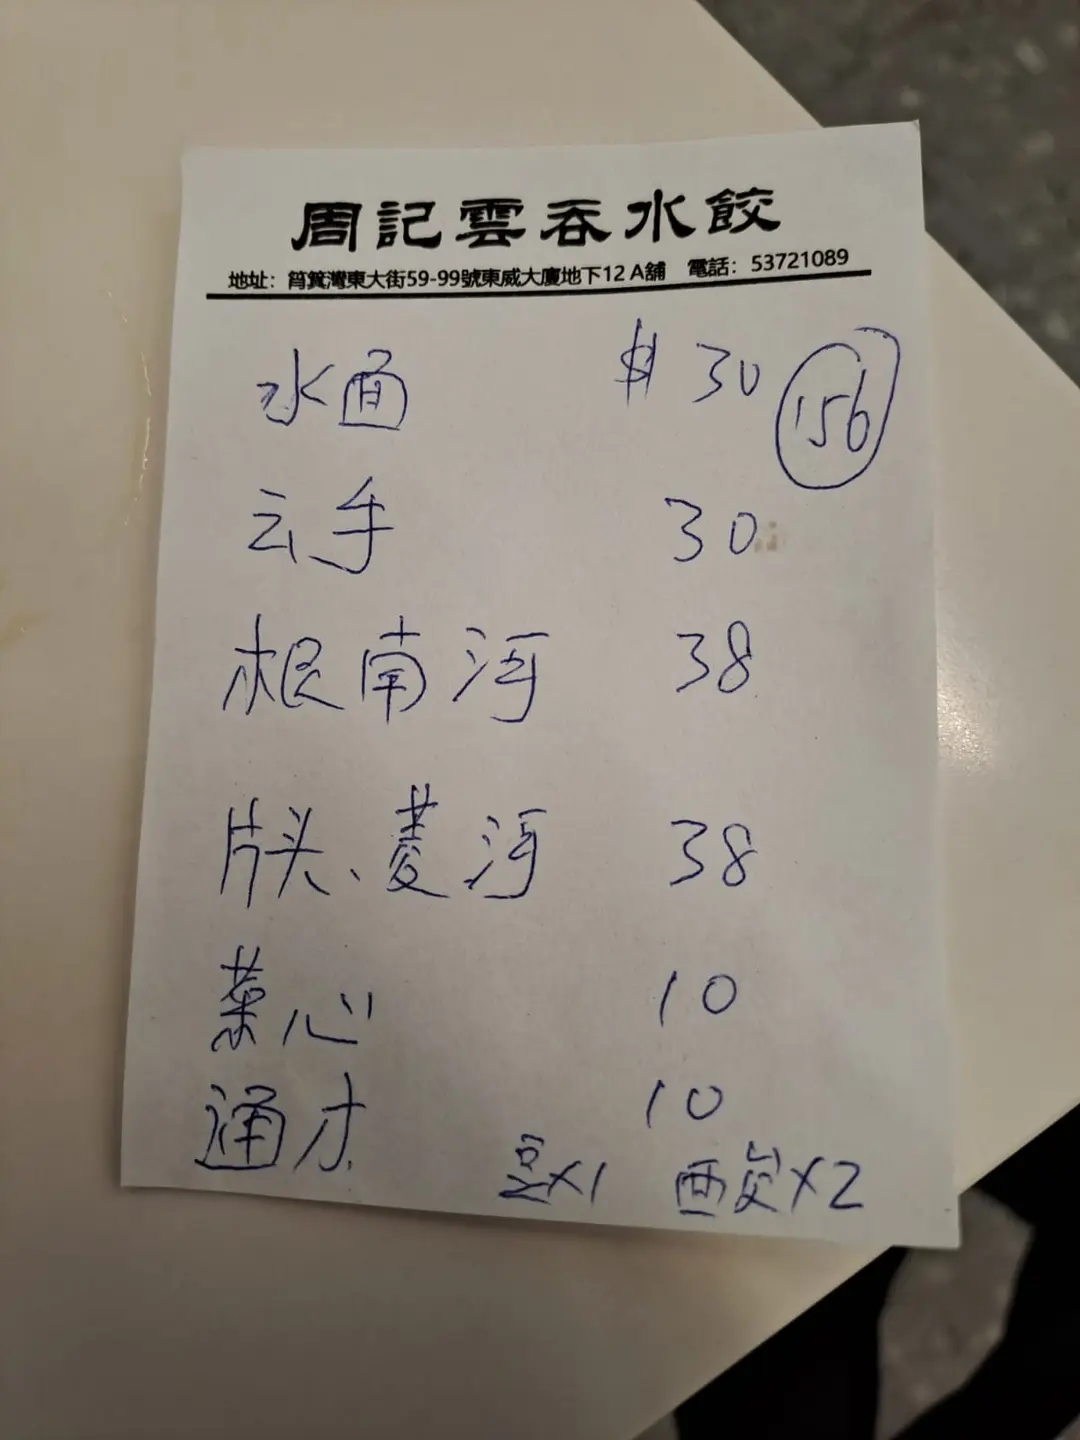 周記雲吞水餃
地址：筲箕灣東大街59-99號東威大廈地下12 A舖 電話：53721089
水面 $ 30 156
云手 30
根南河 38
片头、菱河 38
菜心 10
通才 10
豆X1 西炭X2